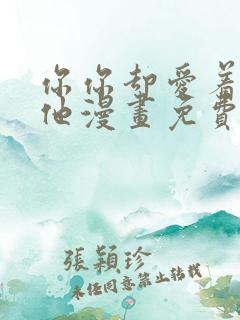 你你却愛着
他漫畫免費
張穎珍
未经同意禁止转载